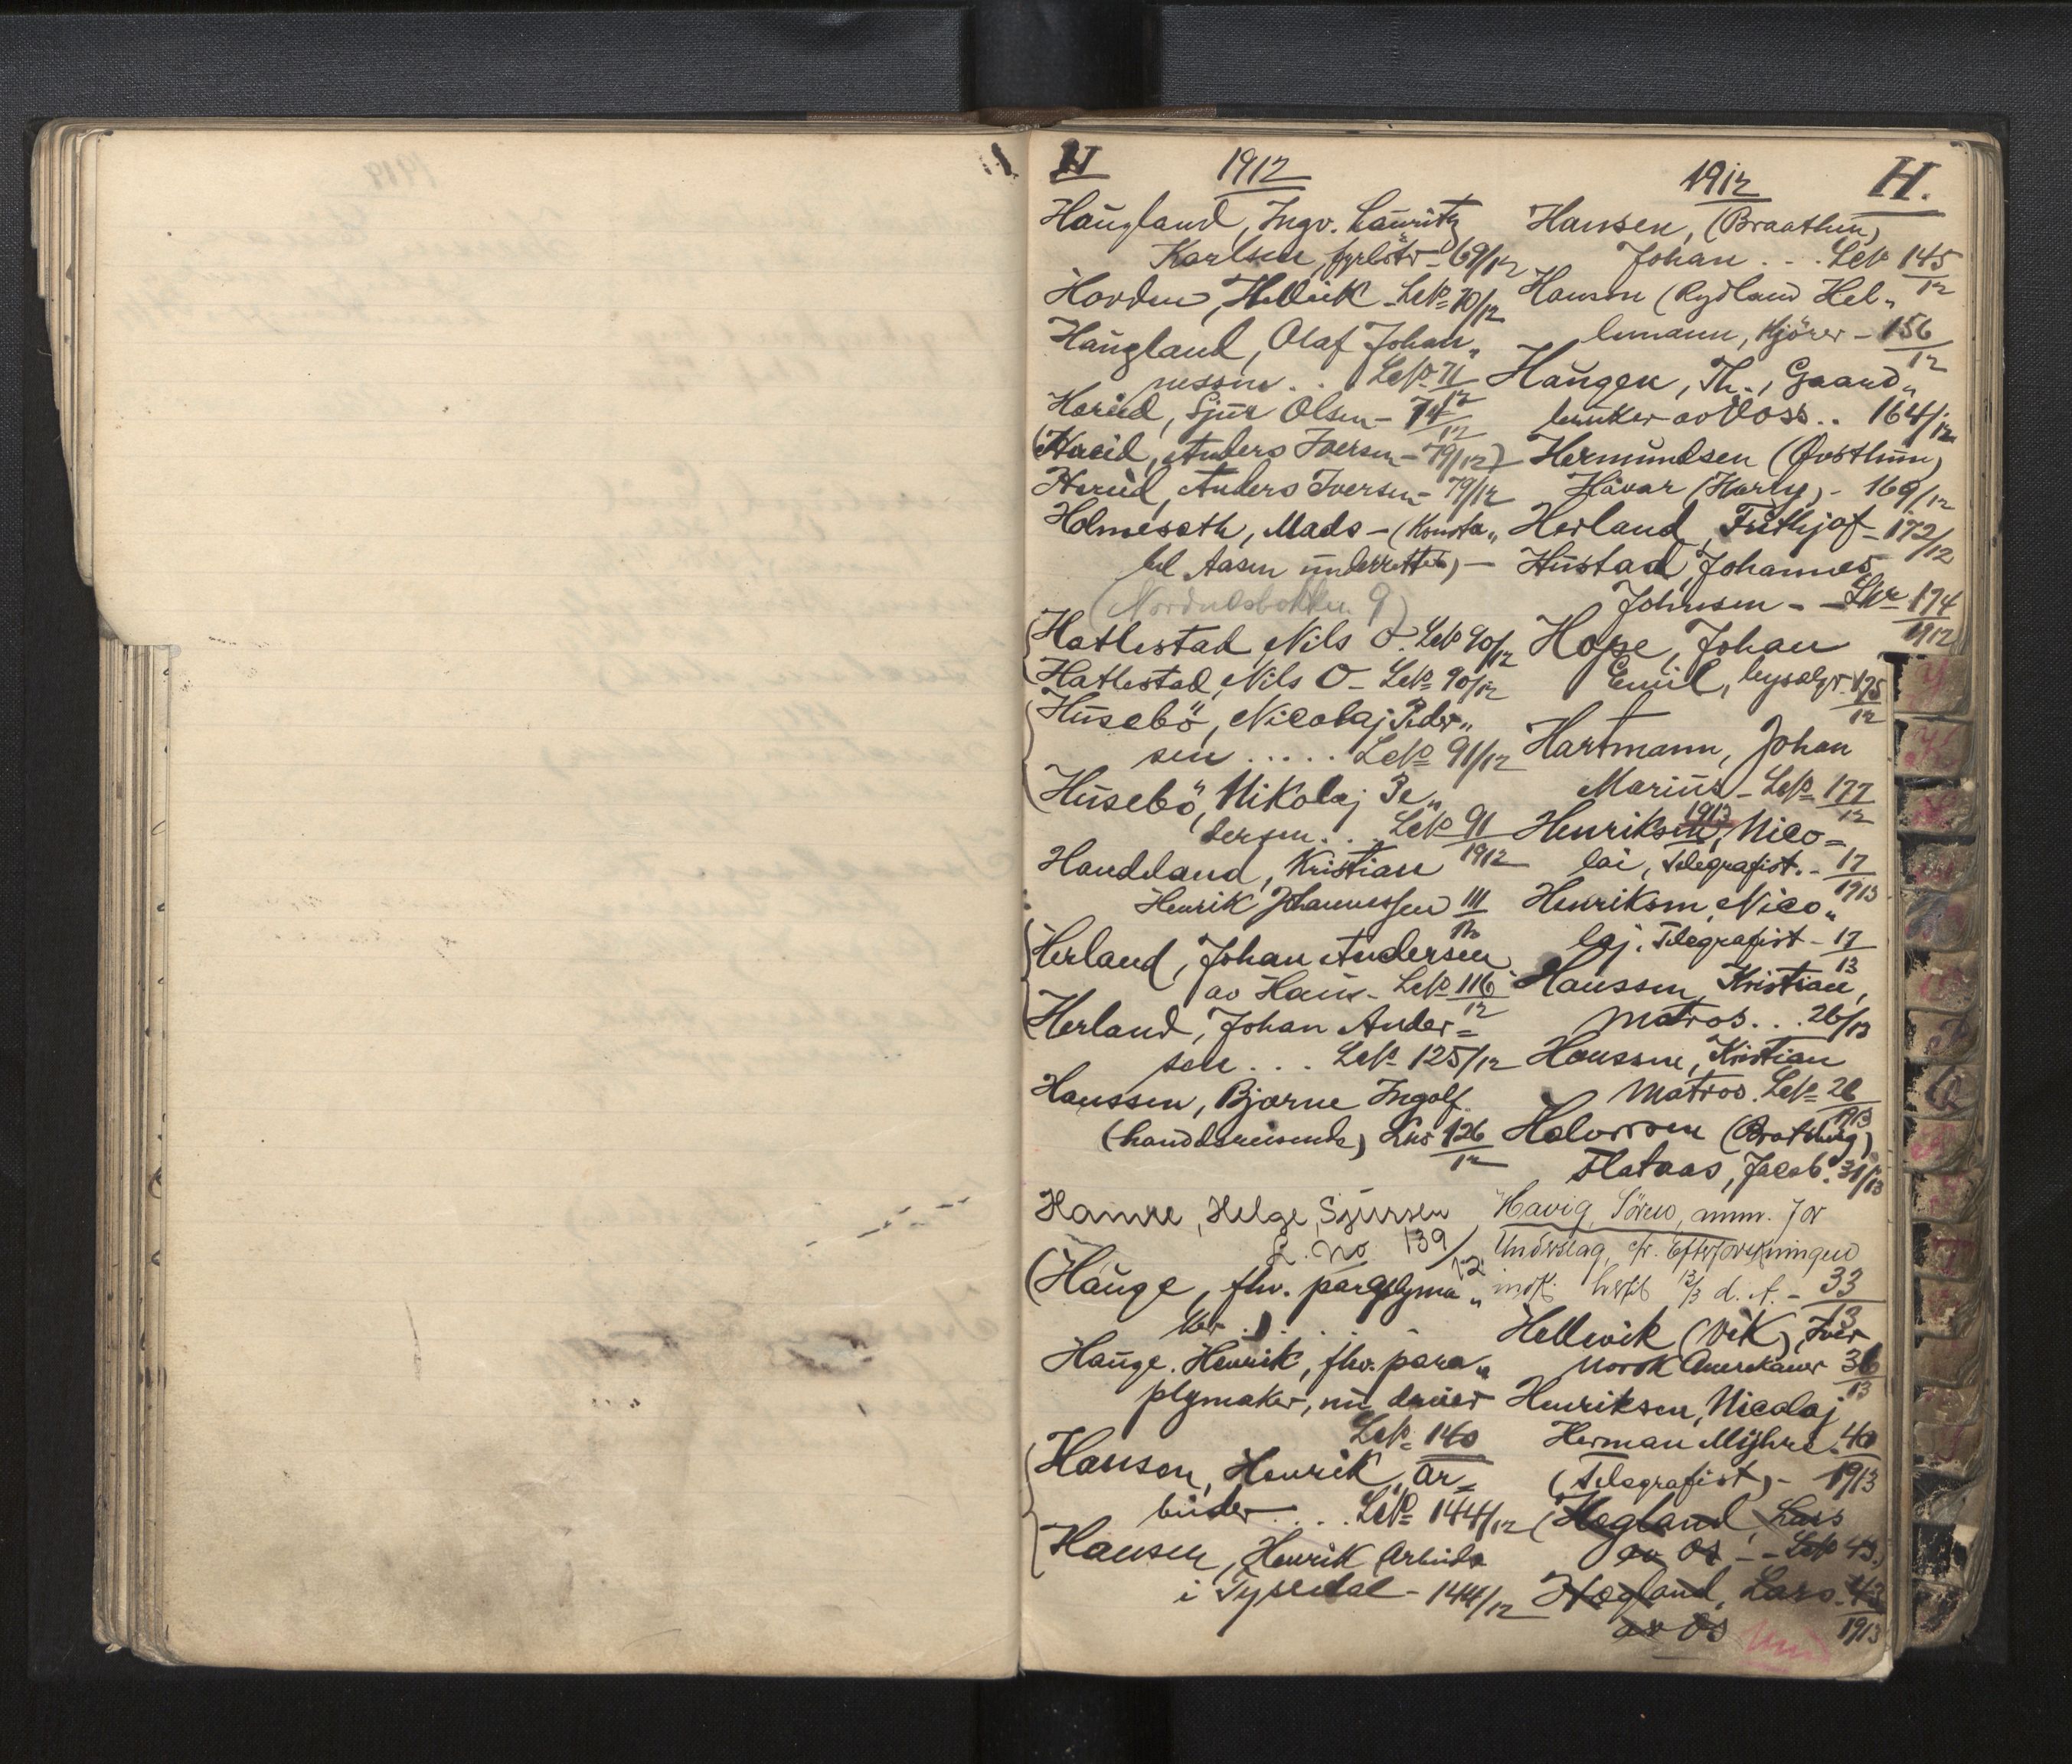 H
1912
Haugland, Ingv. Lauritz
Karlsen, fyrbötr - 69/12
Horden, Hellik - LNo 70/12
Haugland, Olaf Johan„
nessen . . LNo 71/12
Hereid, Sjur Olsen - 74/12
(Hereid, Anders Iversen - 79/12)
Hereid, Anders Iversen - 79/12
Holmeseth, Mads - (Konsta„
bel Aasen underrettes) -
(Nordnesbakken 9)
Hatlestad, Nils O. LNo 90/12
Hatlestad, Nils O - LNo 90/12
Husebö, Nicolaj Peder„
sen . . . . . LNo 91/12
Husebö, Nikolaj Pe„
dersen . . . LNo 91/1912
Handeland, Kristian
Henrik Johannessen 111/12
Herland, Johan Andersen
av Haus - LNo 116/12
Herland, Johan Ander=
sen . . . LNo 125/12
Hanssen, Bjarne Ingolf
(handelsreisende) LNo 126/12
Hamre, Helge, Sjursen
L. No 139/12
(Hauge, fhv. paraplyma„
ker . . . .
Hauge, Henrik, fhv. para„
plymaker, nu driver
LNo 140
Hansen, Henrik, ar=
beider . . . . LNo 144/12
Hansen, Henrik Arbeider
i Tyssedal - 144/12
1912
H.
Hansen, (Braathen)
Johan . . . LNo 145/12
Hansen (Rydland Hel„
lemann, Kjörer - 156/12
Haugen, Th., Gaard„
bruker av Voss . . 164/12
Hermundsen (Øvsthun)
Håvar (Harry) - 169/12
Herland, Frithjof - 172/12
Hustad, Johannes
Johnsen - - LNr 174/1912
Hope, Johan
Emil, bysælger 175/12
Hartmann, Johan
Marius - LNo 177/12
1913
Henriksen, Nico=
lai, Telegrafist. - 17/1913
Henriksen, Nico„
laj. Telegrafist - 17/13
Hanssen, Kristian,
Matros . . . 26/13
Hanssen, Kristian
Matros. LNo 26/1913
Halvorsen
Flataas, Jacob. 31/13
Havig, Sören, anm. for
Underslag, cfr. Efterforskningen
13/3 d. A. - 33/13
Hellevik (Vik), Iver
Norsk Amerikaner 36/13
Henriksen, Nicolaj
Herman Myhre. 40/1913
(Telegrafist) -
(Hegland, Lars
av Os - - LNo 43.)
Hegland, Lars. 43/1913
av Os